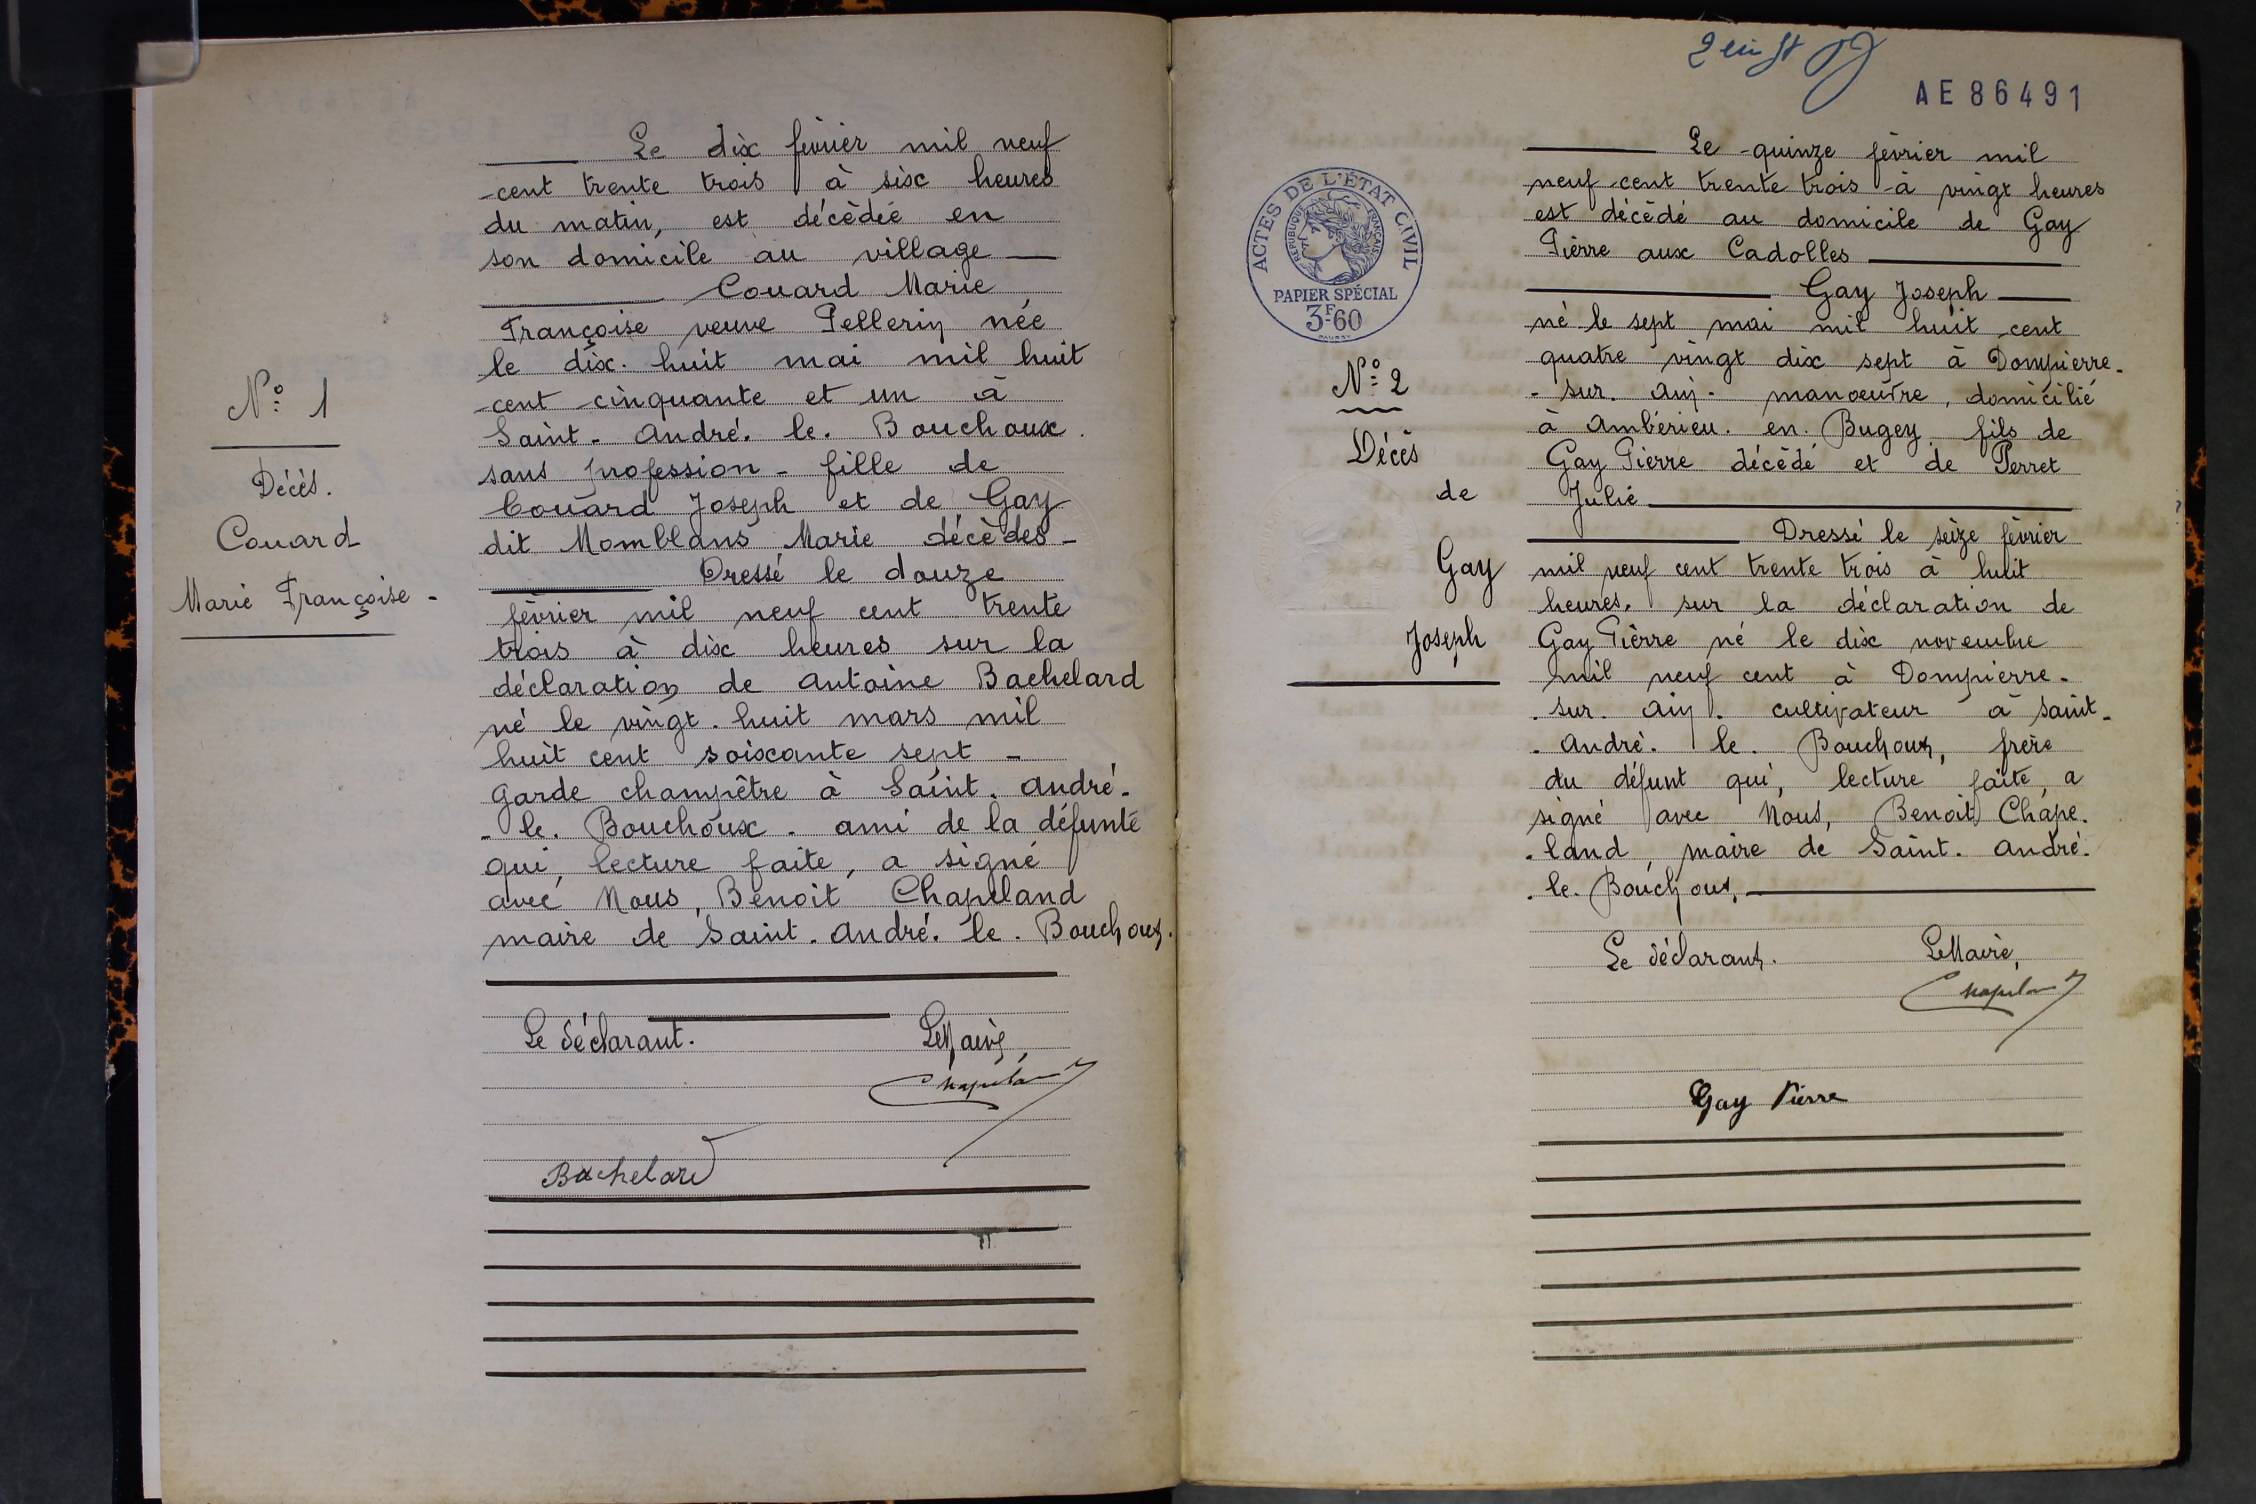 N° 1
Décès.
Couard
Marie Françoise -
Le dix février mil neuf
cent trente trois à six heures
du matin, est décédée en
son domicile au village
Couard Marie
Françoise veuve Pellerin née
le dix-huit mai mil huit
cent cinquante et un à
Saint-André-le-Bouchoux.
sans profession - fille de
Couard Joseph et de Gay
dit Momblans Marie décèdés -
Dressé le douze
février mil neuf cent trente
trois à dix heures sur la
déclaration de Antoine Bachelard
né le vingt-huit mars mil
huit cent soixante sept -
garde champêtre à Saint-André-
- le-Bouchoux - ami de la défunte
qui, lecture faite, a signé
avec Nous, Benoit Chapeland
maire de Saint-André-le-Bouchoux.
Le déclarant. Le Maire,
Chapeland
Bachelard
AE 86491
ACTES DE L'ÉTAT CIVIL
RÉPUBLIQUE FRANÇAISE
PAPIER SPÉCIAL
3F60
N° 2
Décès
de
Gay
Joseph
Le quinze février mil
neuf cent trente trois à vingt heures
est décédé au domicile de Gay
Pierre aux Cadolles
Gay Joseph
né le sept mai mil huit cent
quatre vingt dix sept à Dompierre-
- sur-Ain - manoeuvre, domicilié
à Ambérieu-en-Bugey. fils de
Gay Pierre décédé et de Perret
Julie
Dressé le seize février
mil neuf cent trente trois à huit
heures, sur la déclaration de
Gay Pierre né le dix novembre
mil neuf cent à Dompierre-
- sur-Ain - cultivateur à Saint-
- André-le-Bouchoux, frère
du défunt qui, lecture faite, a
signé avec Nous, Benoit Chape-
- land, maire de Saint-André-
- le-Bouchoux.
Le déclarant. Le Maire,
Chapeland
Gay Pierre